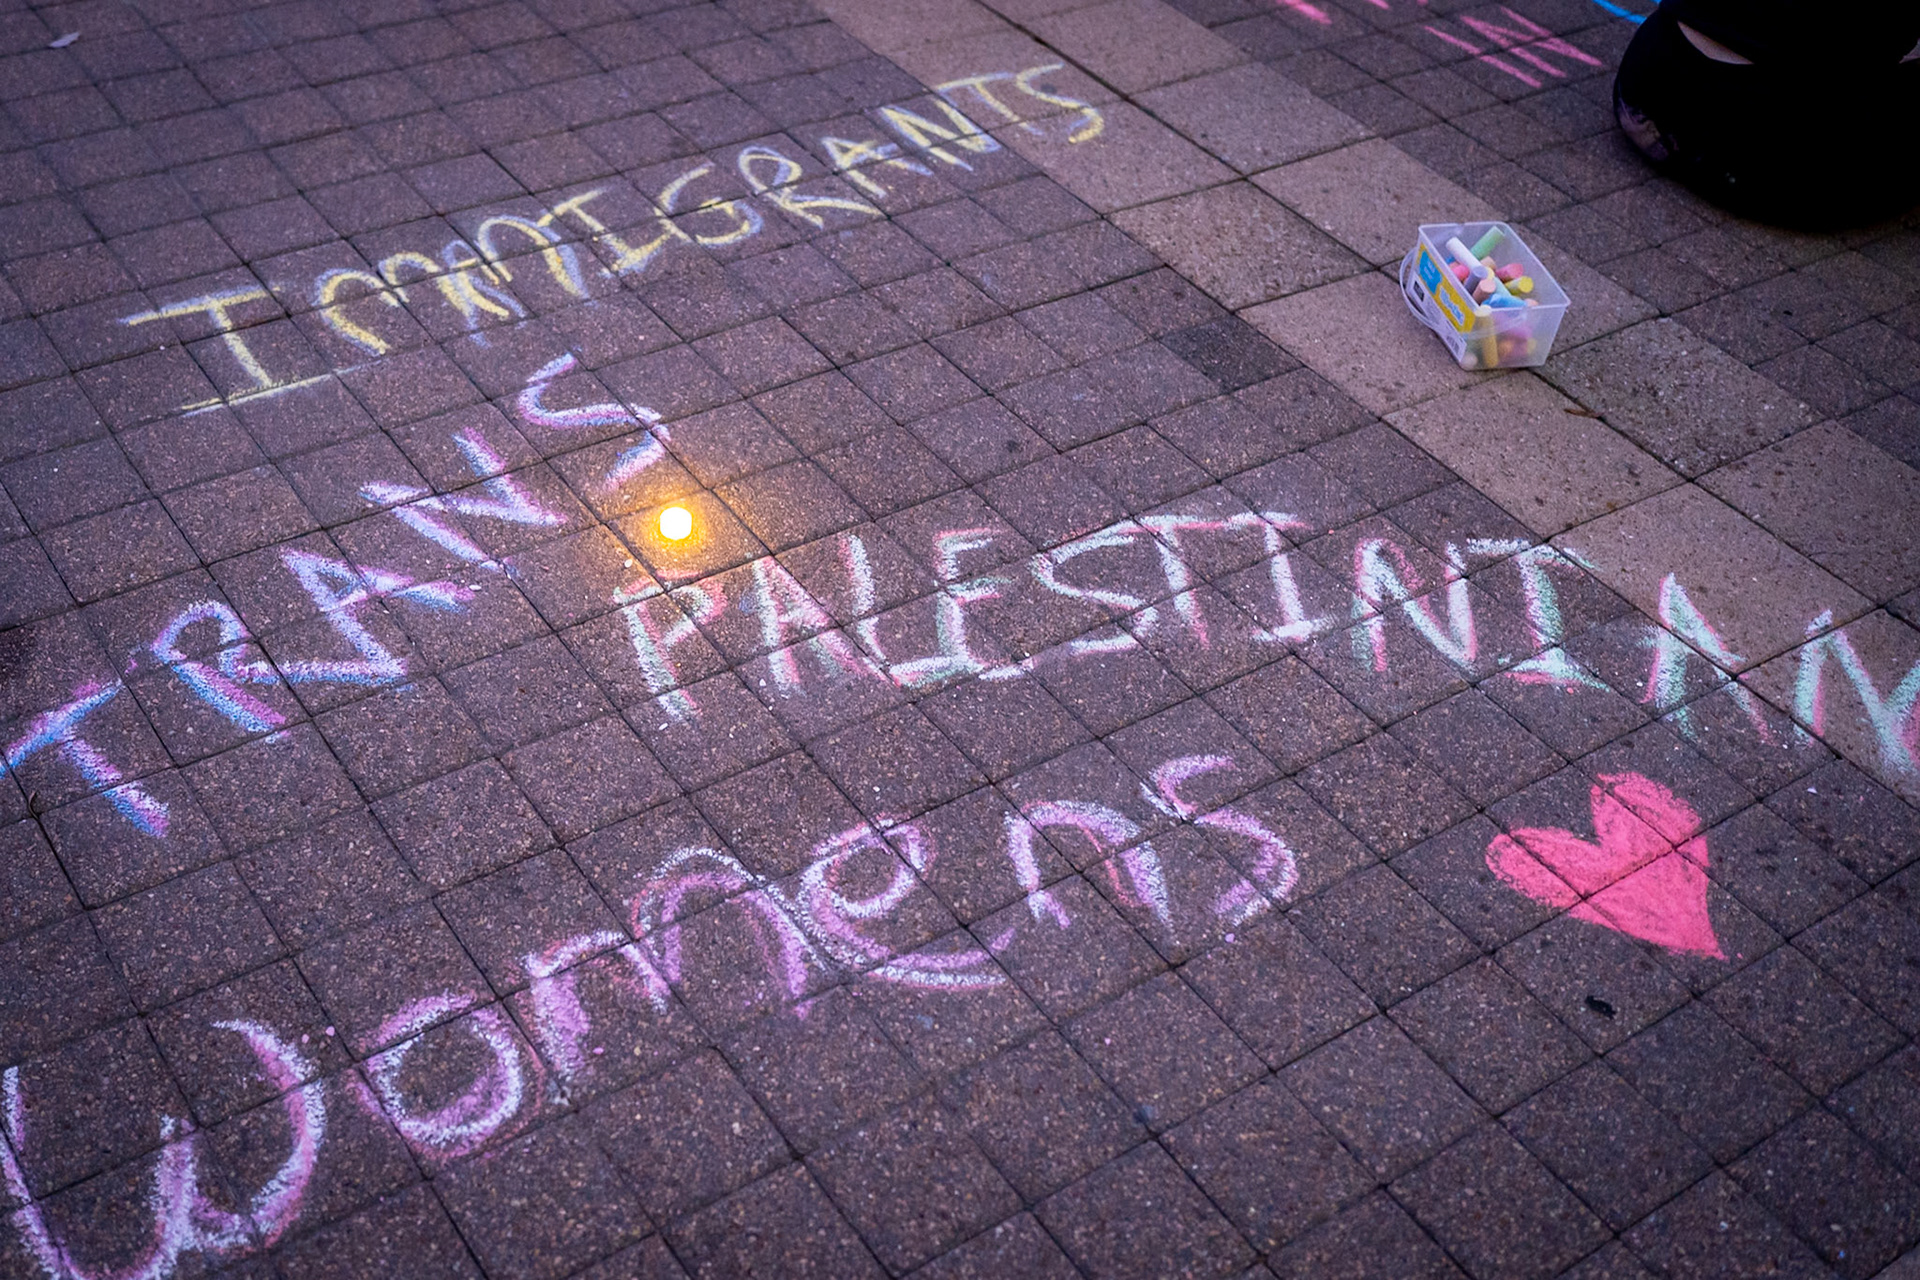 IMMIGRANTS
TRANS
PALESTINIAN
Womens